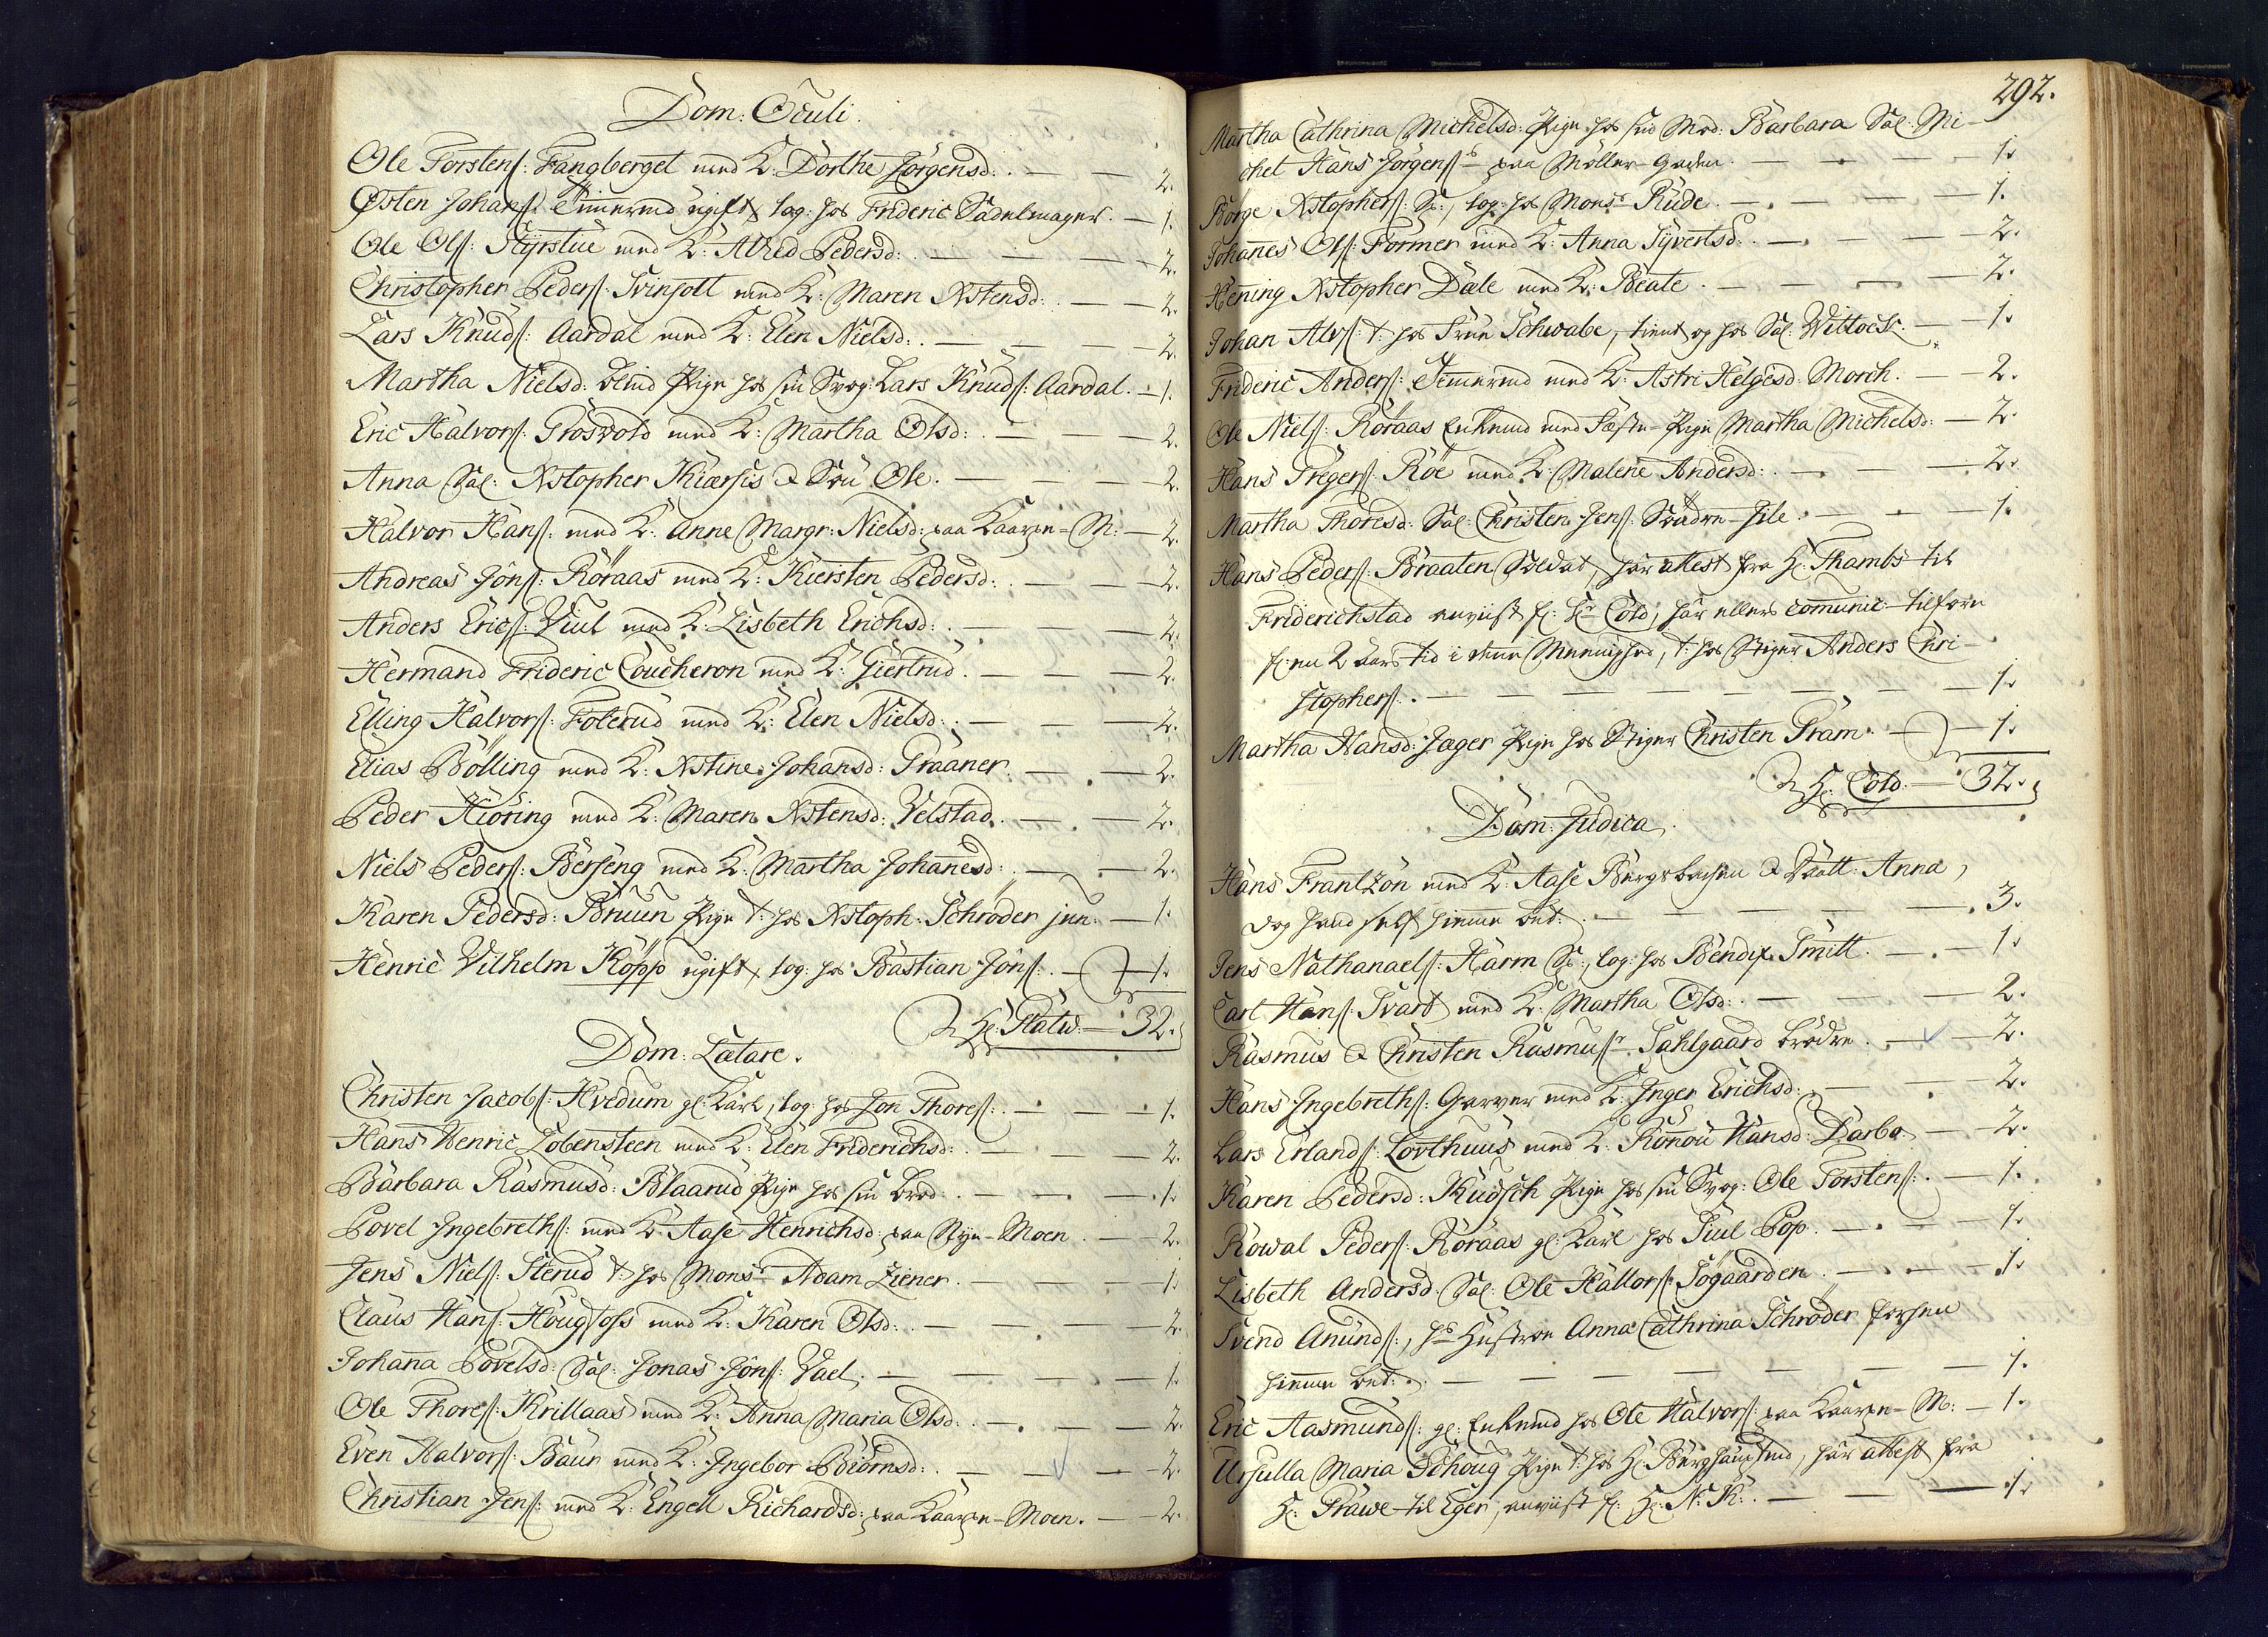 Dom: Oculi.
Ole Torstens: Fangberget med K: Dorthe Jörgensd: — 2.
Östen Johans: Timermd ugift, log: hos Frideric Sadelmager. — 1.
Ole Ols: Styrstue med K: Alhed Pedersd: — 2.
Christopher Peders: Svinsott med K: Maren Xstensd: — 2.
Lars Knuds: Aardal med K: Elen Nielsd: — 2.
Martha Nielsd: blind Pige hos sin Svog: Lars Knuds: Aardal. — 1.
Eric Halvors: Grosvold med K: Martha Olsd: — 2.
Anna Sal: Xstopher Kiærsis & Sön Ole. — 2.
Halvor Hans: med K: Anne Margr: Nielsd: paa Kaarpe-M: — 2.
Andreas Jöns: Röraas med K: Kiersten Pedersd: — 2.
Anders Erics: Viul med K: Lisbeth Erichsd: — 2.
Hermand Frideric Coucheron med K: Giertrud. — 2.
Elling Halvors: Foterud med K: Elen Nielsd: — 2.
Elias Bölling med K: Xstine Johansd: Graaner. — 2.
Peder Hiöring med K: Maren Xstensd: Velstad. — 2.
Niels Peders: Berseng med K: Martha Johanesd: — 2.
Karen Pedersd: Bruun Pige t: hos Xstoph: Schrøder jun: — 1.
Henric Vilhelm Köpp ugift, log: hos Bastian Jöns: — 1.
Hr: — 32.
Dom: Lætare.
Christen Jacobs: Hvedum gl: Karl, log: hos Jon Thores: — 1.
Hans Henric Lobensteen med K: Elen Friderichsd: — 2.
Barbara Rasmusd: Blaarud Pige hos sin brod: — 1.
Povel Ingebreths: med K: Aase Henrichsd: paa Nye-Moen. — 2.
Jens Niels: Sterud t: hos Monsr Adam Ziener. — 1.
Claus Hans: Hougfoss med K: Karen Olsd: — 2.
Johana Povelsd: Sal: Jonas Jöns: Vael. — 1.
Ole Thores: Krillaas med K: Anna Maria Olsd: — 2.
Even Halvors: Baur med K: Ingebor Biörnsd: — 2.
Christian Jens: med K: Engell Richardsd: paa Kaarpe-Moen. — 2.
292.
Martha Cathrina Michelsd: Pige hos sin Mod: Barbara Sal: Mi-
chel Hans Jörgens: paa Möller-Gaden. — 1.
Börge Xstophers: S:, log: hos Monsr Rude. — 1.
Johanes Ols: Former med K: Anna Syvertsd: — 2.
Hening Xstopher Dæle med K: Beate. — 2.
Johan Alvs: t: hos Frue Schwabe, tient og hos Sal: Wittoch. — 1.
Frideric Anders: Timermd med K: Astri Helgesd: Morch. — 2.
Ole Niels: Röraas Enkemd med Fæste-Pige Martha Michelsd: — 2.
Hans Gregers: Röe med K: Malene Andersd: — 2.
Martha Thoresd: Sal: Christen Jens: — 1.
Hans Peders: Braaten Soldat, har attest fra Hr: Thambs til
Friderichstad anviist f: Hr Cold, har ellers comunic: tilforn
for en 2 aars tid i denne Menighed, t: hos Stiger Anders Chri-
stophers: — 1.
Martha Hansd: Jæger Pige hos Stiger Christen Fram. — 1.
Hr: Cold. — 32.
Dom: Judica.
Hans Frantzön med K: Aase & Datt: Anna,
dog hand self hieme bet: — 3.
Jens Nathanaels: Harm S:, log: hos Bendix Smitt. — 1.
Carl Hans: Svart med K: Martha Olsd: — 2.
Rasmus & Christen Rasmus: Sahlgaard brödre. — 2.
Hans Ingebreths: Garver med K: Inger Erichsd: — 2.
Lars Erlands: Lorthuus med K: Ronou Hansd: Darbo. — 2.
Karen Pedersd: Kudsch Pige hos sin Svog: Ole Torstens: — 1.
Rowal Peders: Röraas gl: Karl hos Siul Pop. — 1.
Lisbeth Andersd: Sal: Ole Hallors: Sögaarden. — 1.
Svend Anunds:, hs Hustroe Anna Cathrina Schrøder
hieme bet: — 1.
Eric Aasmunds: gl: Enkemd hos Ole Halvors: paa Kaarpe-M: — 1.
Ursulla Maria Schoug Pige t: hos Hr: Berghauptmd, har attest fra
Hr: Strawe til Eger, anviist f: Hr: N: K: — 1.